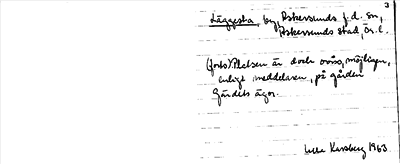 3
Läggesta, by, Askersunds f.d. sn,
Askersunds stad, Ör. l.
(forts) Platsen är dock oviss, möjligen,
enligt meddelaren, på gården
Gärdets ägor.
Karsberg 1963